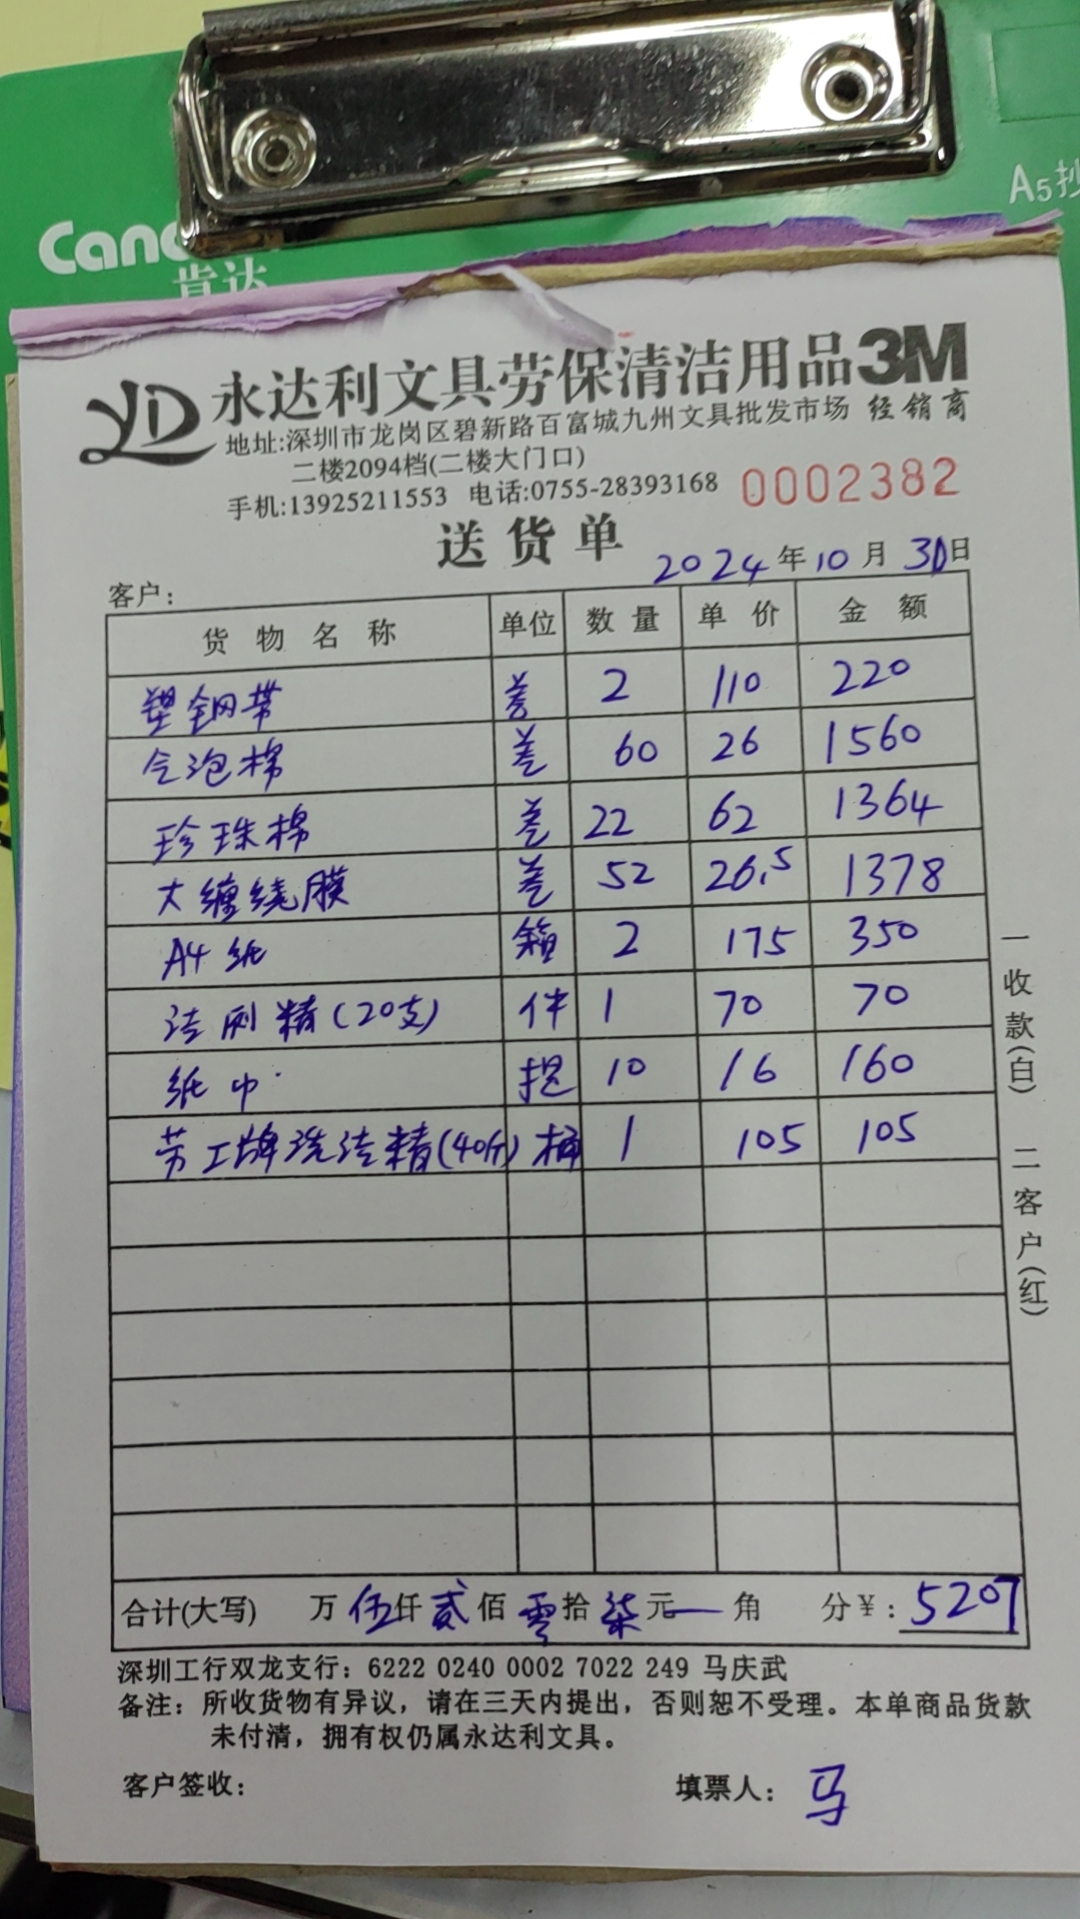 Canc
肯达
A5抄
YD 永达利文具劳保清洁用品3M
地址:深圳市龙岗区碧新路百富城九州文具批发市场 经销商
二楼2094档(二楼大门口)
手机:13925211553 电话:0755-28393168 0002382
送货单
2024年10月30日
客户:
货物名称 单位 数量 单价 金额
塑钢带 卷 2 110 220
气泡棉 卷 60 26 1560
珍珠棉 卷 22 62 1364
大缠绕膜 卷 52 26.5 1378
A4纸 箱 2 175 350
洁厕精(20支) 件 1 70 70
纸巾 提 10 16 160
劳工牌洗洁精(40斤) 桶 1 105 105
合计(大写) 万伍仟贰佰零拾柒元一角 分¥:5207
深圳工行双龙支行: 6222 0240 0002 7022 249 马庆武
备注: 所收货物有异议, 请在三天内提出, 否则恕不受理。本单商品货款
未付清, 拥有权仍属永达利文具。
客户签收: 填票人: 马
一收款(白) 二客户(红)